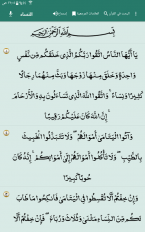 النساء
بِسْمِ اللَّهِ الرَّحْمَٰنِ الرَّحِيمِ
يَا أَيُّهَا النَّاسُ اتَّقُوا رَبَّكُمُ الَّذِي خَلَقَكُم مِّن نَّفْسٍ
وَاحِدَةٍ وَخَلَقَ مِنْهَا زَوْجَهَا وَبَثَّ مِنْهُمَا رِجَالًا
كَثِيرًا وَنِسَاءً ۚ وَاتَّقُوا اللَّهَ الَّذِي تَسَاءَلُونَ بِهِ وَالْأَرْحَامَ
ۚ إِنَّ اللَّهَ كَانَ عَلَيْكُمْ رَقِيبًا
وَآتُوا الْيَتَامَىٰ أَمْوَالَهُمْ ۖ وَلَا تَتَبَدَّلُوا الْخَبِيثَ
بِالطَّيِّبِ ۖ وَلَا تَأْكُلُوا أَمْوَالَهُمْ إِلَىٰ أَمْوَالِكُمْ ۚ إِنَّهُ كَانَ
حُوبًا كَبِيرًا
وَإِنْ خِفْتُمْ أَلَّا تُقْسِطُوا فِي الْيَتَامَىٰ فَانكِحُوا مَا طَابَ
لَكُم مِّنَ النِّسَاءِ مَثْنَىٰ وَثُلَاثَ وَرُبَاعَ ۖ فَإِنْ خِفْتُمْ أَلَّا